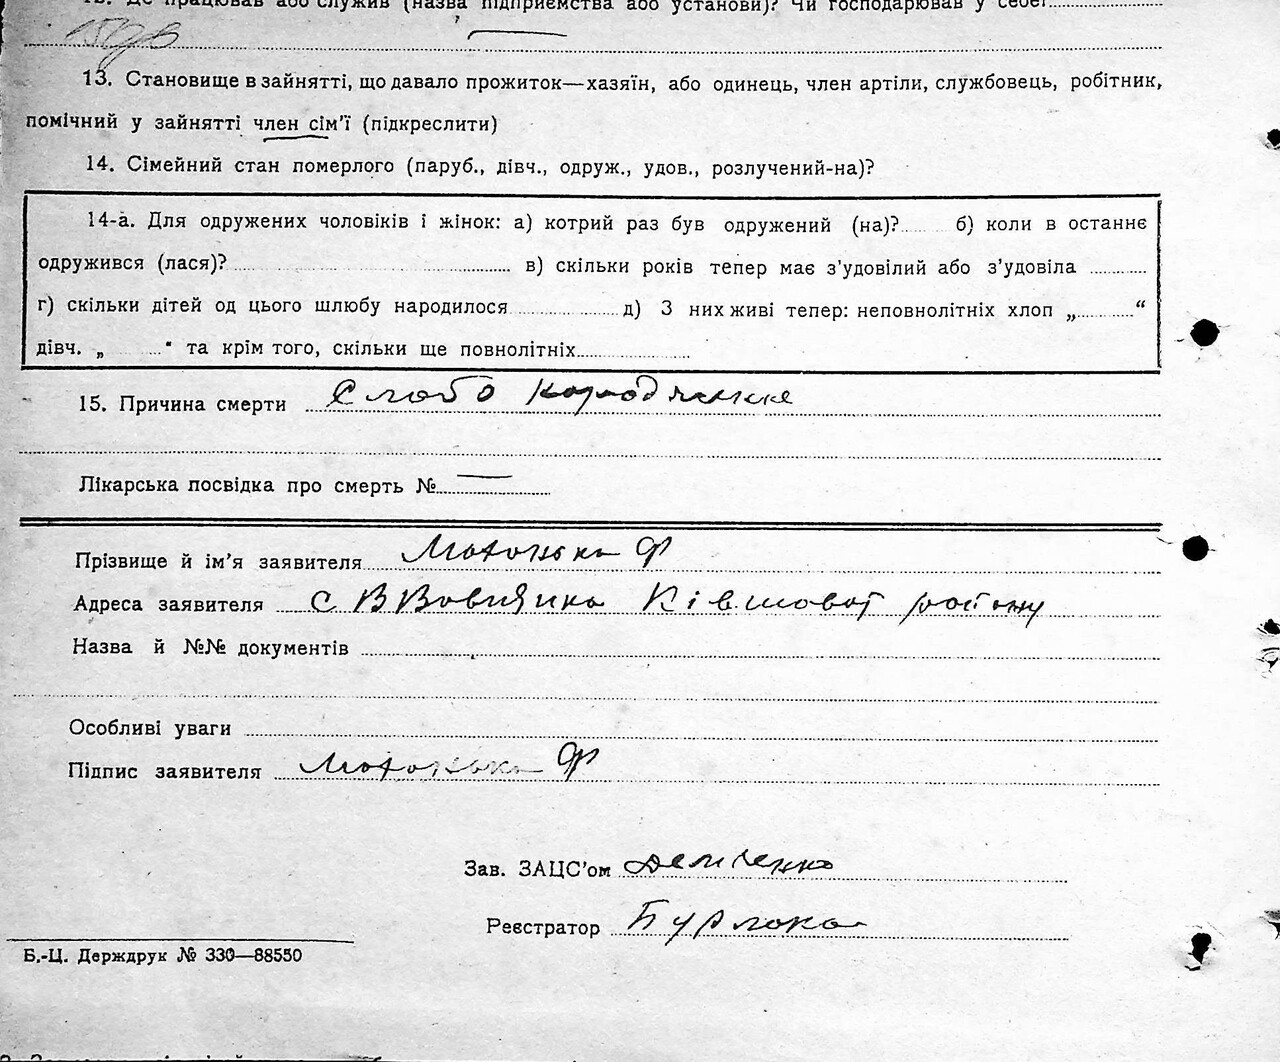 12. Де працював або служив (назва підприємства або установи)? Чи господарював у себе?
13. Становище в зайнятті, що давало прожиток—хазяїн, або одинець, член артіли, службовець, робітник,
помічний у зайнятті член сім’ї (підкреслити)
14. Сімейний стан померлого (паруб., дівч., одруж., удов., розлучений-на)?
14-а. Для одружених чоловіків і жінок: а) котрий раз був одружений (на)? б) коли в останнє
одружився (лася)? в) скільки років тепер має з’удовілий або з’удовіла
г) скільки дітей од цього шлюбу народилося д) З них живі тепер: неповнолітніх хлоп „ “
дівч. „ “ та крім того, скільки ще повнолітніх
15. Причина смерти Слабо
Лікарська посвідка про смерть № —
Прізвище й ім’я заявителя Ф
Адреса заявителя с В району
Назва й №№ документів
Особливі уваги
Підпис заявителя Ф
Зав. ЗАЦС’ом Демченко
Реєстратор Бурлака
Б.-Ц. Держдрук № 330—88550